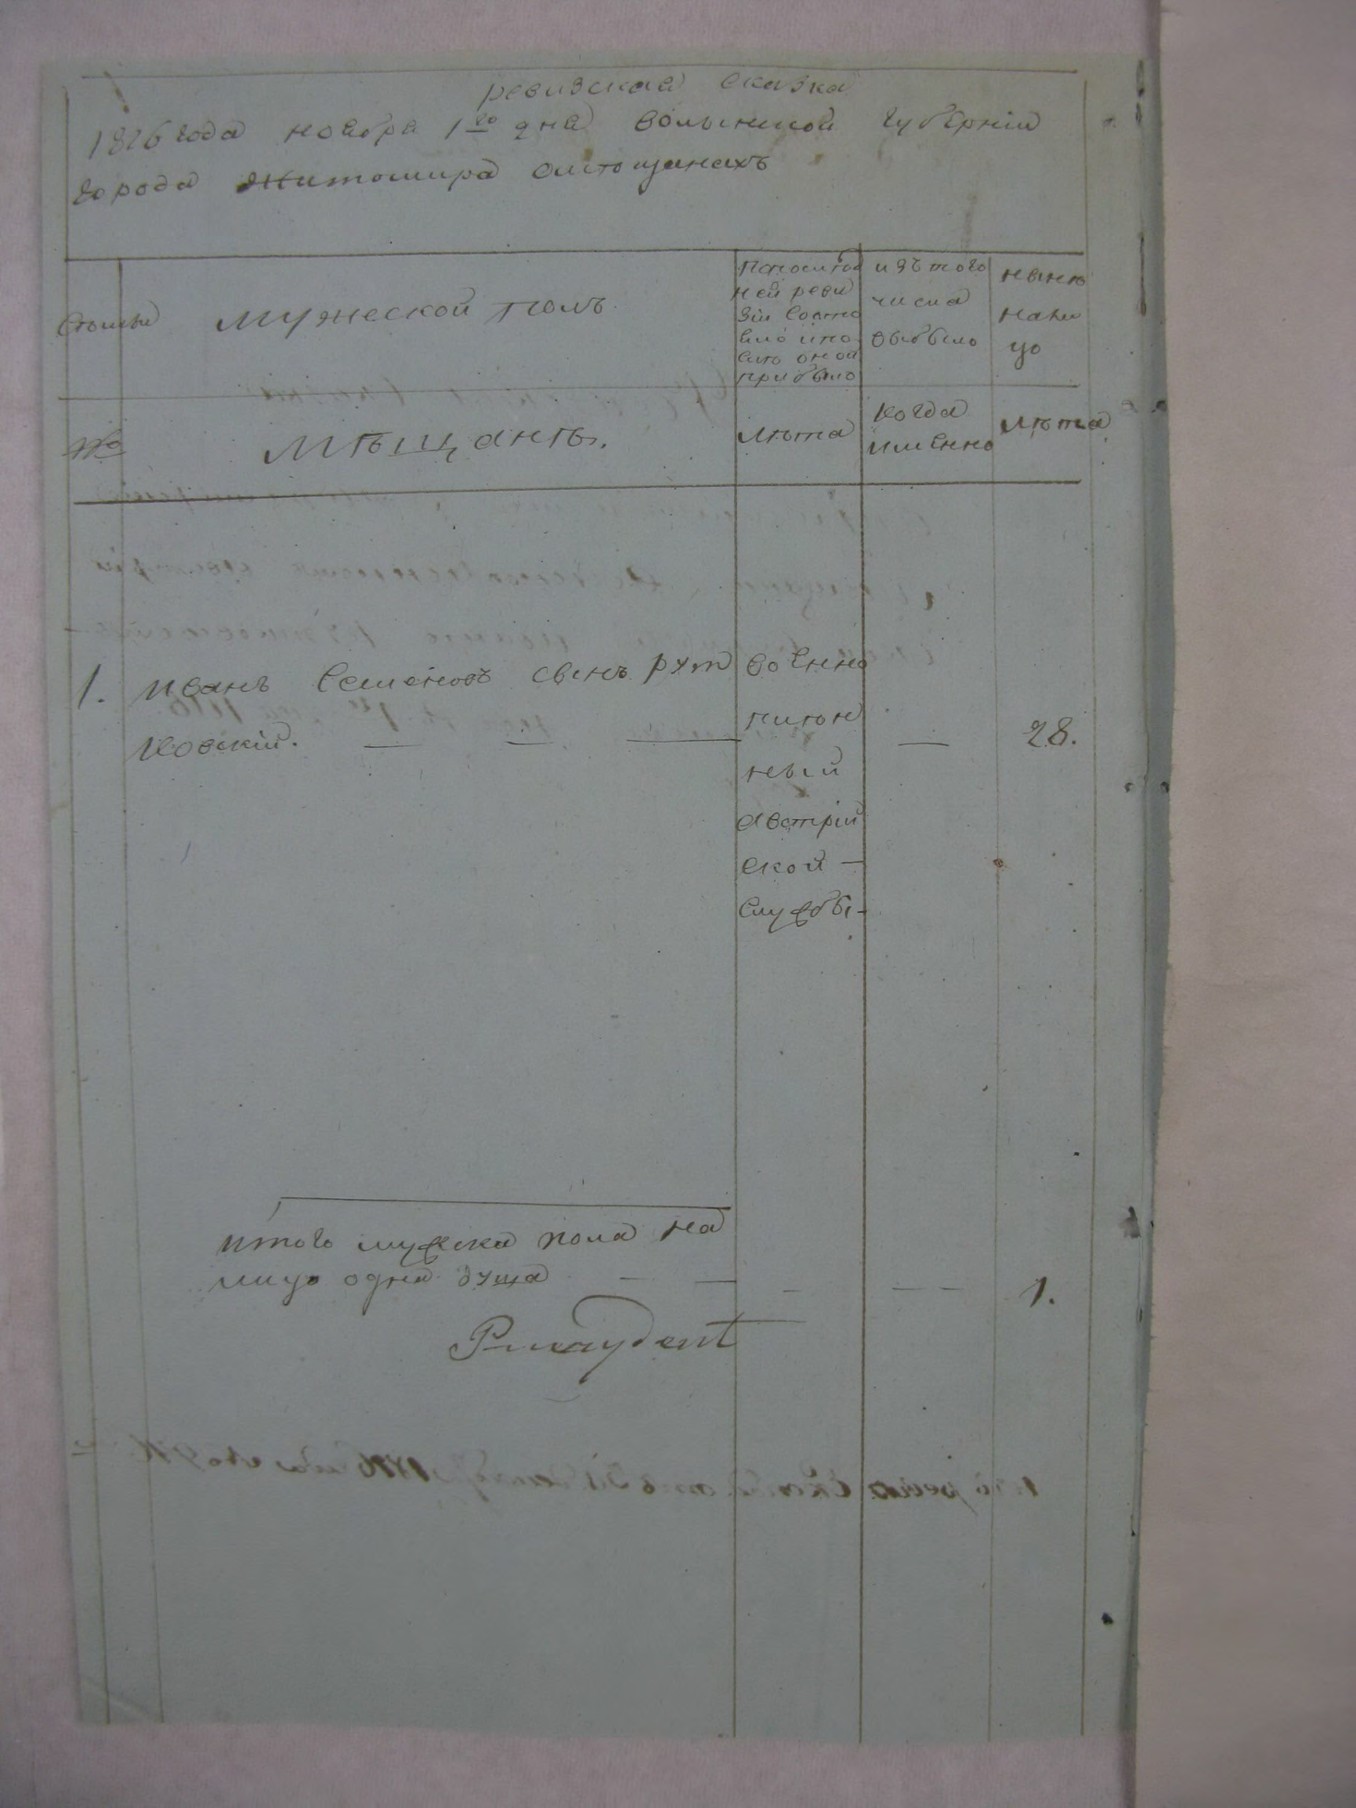 ревизская сказка
1816 года ноября 1го дня волынской губерніи
города житомира омѣщанахъ
Статьи
мужеской полъ
Попослѣд
ней реви
зіи состо
яло ипо
слѣ оной
прибыло
изъ того
числа
выбыло
нынѣ
нали
цо
№
Мѣщанѣ.
лѣта
когда
имѣнно
лѣта
1. иванъ Семеновъ сынъ рут
ковскій.
воЕнно
плѣн
ный
австрій
ской
службы
28.
итого мужска пола на
лицо одна душа 1.